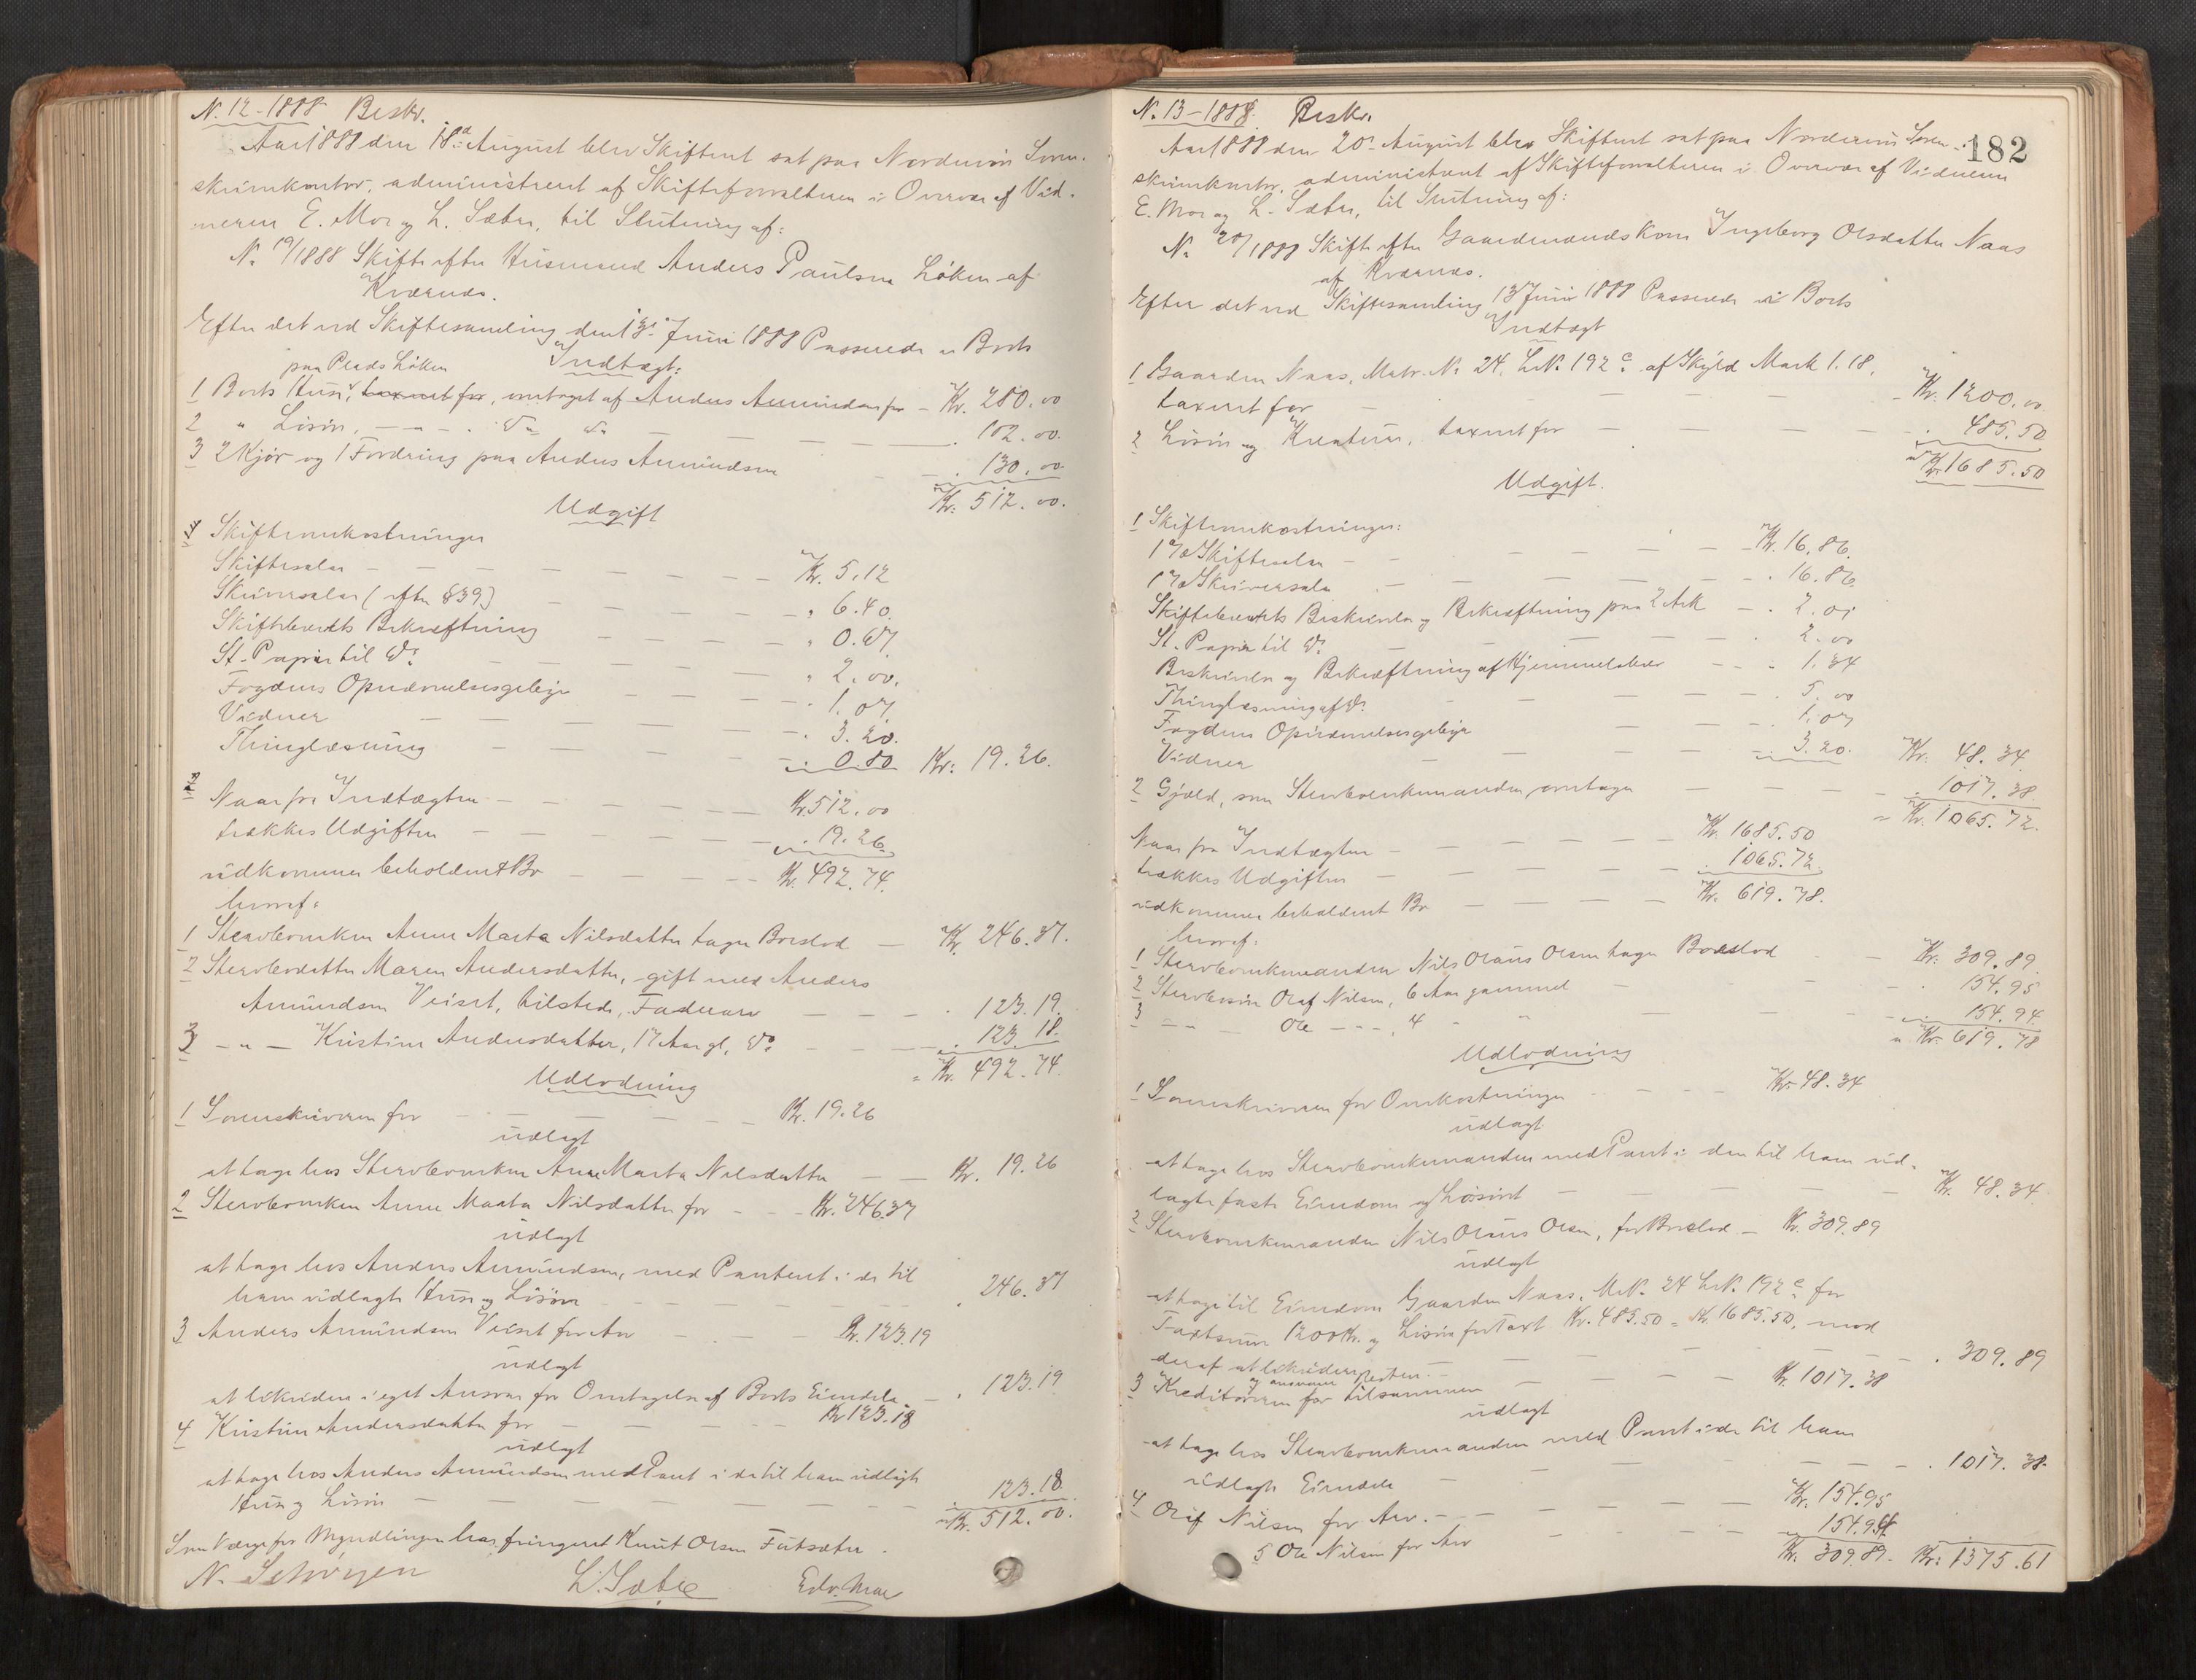 N. 12-1888 Beskr.
Aar 1888 den 18de August blev Skifteret sat paa Nordmør Soren-
skriverkontor, administreret af Skifteforvalteren i Overvær af Vid-
nerne E. Moe og L. Sæbu, til Slutning af:
N. 19/1888 Skifte efter Husmand Anders Paulsen Løken af
Kværnæs.
Efter det ved Skiftesamling den 13de Juni 1888 Passerede er Boets
Indtægt:
paa Plads Løken
1 Boets Huse, taxeret for, overtaget af Anders Amundsen for - Kr. 280.00
2 " Løsøre, - " - . Do Do — . 102.00.
3 2 Kjør og 1 Fordring paa Anders Amundsen — . 130.00
Kr. 512.00.
Udgift
1 Skifteomkostninger
Skiftesalær — Kr. 5.12
Skriversalær (efter §39) — " 6.40.
Skiftebrevets Bekræftning — " 0.67
St. Papir til Do — " 2.00.
Fogdens Opnævnelsesgebyr — . 1.07
Vidner — . 3.20.
Thinglæsning — . 0.80 Kr. 19.26.
2 Naar fra Indtægten — Kr. 512.00
trækkes Udgiften — . 19.26
udkommer beholdent Bo — Kr. 492.74.
hvoraf:
1 Stervboenken Anne Marta Nilsdatter tager Boeslod — Kr. 246.37.
2 Stervbodatter Maren Andersdatter, gift med Anders
Amundsen Veiset, tilstede, Faderarv — . 123.19.
3 - " - Kristine Andersdatter, 17 Aar gl., Do — . 123.18.
= Kr. 492.74.
Udlodning
1 Sorenskriveren for — Kr. 19.26
udlagt
at tage hos Stervboenken Anne Marta Nilsdatter — Kr. 19.26
2 Stervboenken Anne Marta Nilsdatter for - - - Kr. 246.37
udlagt
at tage hos Anders Amundsen, med Panteret i de til
ham udlagte Huse og Løsøre — . 246.37
3 Anders Amundsen Veiset for Arv — Kr. 123.19
udlagt
at likvidere i eget Ansvar for Overtagelse af Boets Eiendele — . 123.19
4 Kristine Andersdatter for — Kr. 123.18
udlagt
at tage hos Anders Amundsen med Pant i de til ham udlagte
Huse og Løsøre — 123.18
Kr. 512.00.
Som Værge for Myndlingen har fungeret Knut Olsen Futsæter.
L. Sæbu Edv. Moe
182
N. 13-1888. Beskr.
Aar 1888 den 20de August blev Skifteret sat paa Nordmør Soren-
skriverkontor, administreret af Skifteforvalteren i Overvær af Vidnerne
E. Moe og L. Sæbu, til Slutning af:
N. 20/1888 Skifte efter Gaardmandskone Ingeborg Olsdatter Naas
af Kværnæs.
Efter det ved Skiftesamling 13 Juni 1888 Passerede er Boets
Indtægt
1 Gaarden Naas, Matr. N. 24. L.N. 192 c. af Skyld Mark 1.18.
taxeret for — Kr. 1200.00.
2 Løsøre og Kreature, taxeret for — . 485.50
Kr. 1685.50
Udgift.
1 Skifteomkostninger:
1% Skiftesalær — Kr. 16.86.
1% Skriversalær — . 16.86
Skiftebrevets Beskrivelse og Bekræftning paa 2 Ark — . 2.01
St. Papir til Do — . 2.00
Beskrivelse og Bekræftning af Hjemmelsbrev - - - 1.34
Thinglæsning af Do — . 5.00
Fogdens Opnævnelsesgebyr — . 1.07
Vidner — . 3.20. Kr. 48.34.
2 Gjæld, som Stervboenkemanden overtager — . 1017.38.
= Kr. 1065.72.
Naar fra Indtægten — Kr. 1685.50
trækkes Udgiften — . 1065.72.
udkommer beholdent Bo — Kr. 619.78.
hvoraf:
1 Stervboenkemanden Nils Olaus Olsen tager Boeslod — Kr. 309.89.
2 Stervbosøn Olaf Nilsen, 6 Aar gammel — . 154.95
3 - " - Ole - - - , 4 - " — . 154.94.
= Kr. 619.78
Udlodning
1 Sorenskriveren for Omkostninger - - - Kr. 48.34
udlagt
at tage hos Stervboenkemanden med Pant i den til ham ud-
lagte faste Eiendom og Løsøret — Kr. 48.34
2 Stervboenkemanden Nils Olaus Olsen, for Boeslod — Kr. 309.89
udlagt
at tage til Eiendom Gaarden Naas, M.N. 24 L.N. 192 c. for
Taxtsum 1200 Kr. og Løsøre for Taxt Kr. 485.50 = Kr. 1685.50, mod
deraf at likvidere og ansvare Resten. — . 309.89
3 Kreditorerne for tilsammen — Kr. 1017.38
udlagt
at tage hos Stervboenkemanden med Pant i de til ham
udlagte Eiendele — . 1017.38.
4 Olaf Nilsen for Arv. - - Kr. 154.95
5 Ole Nilsen for Arv — 154.94
Kr. 309.89. Kr. 1375.61